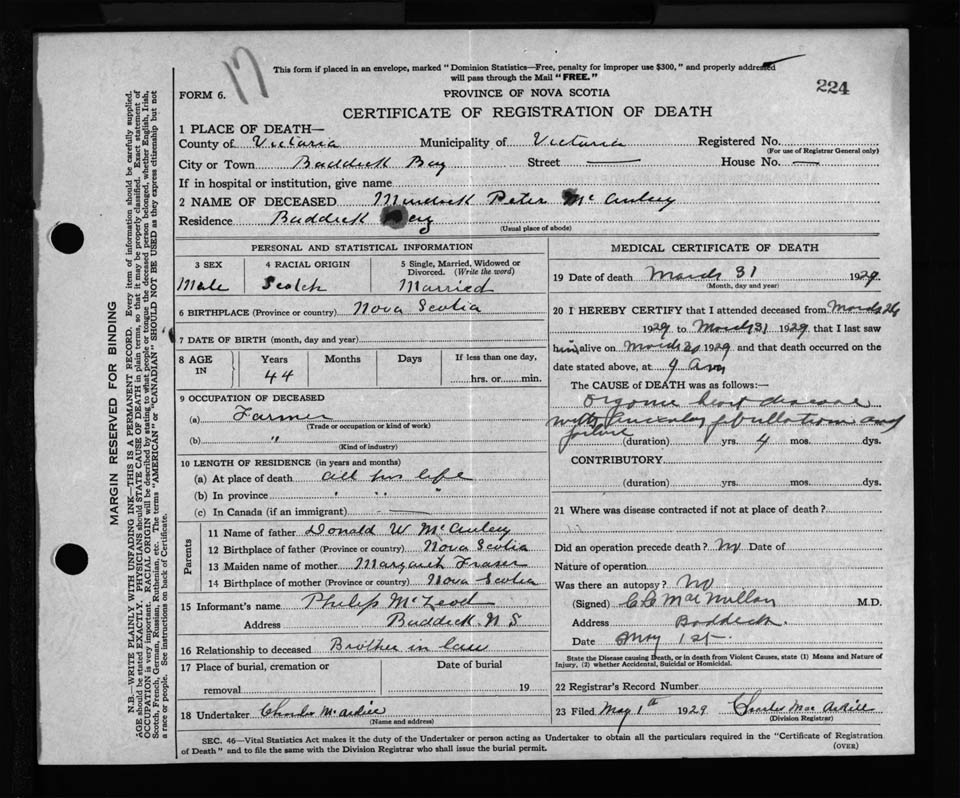 17
This form if placed in an envelope, marked "Dominion Statistics—Free, penalty for improper use $300," and properly addressed
will pass through the Mail "FREE."
224
FORM 6.
PROVINCE OF NOVA SCOTIA
CERTIFICATE OF REGISTRATION OF DEATH
1 PLACE OF DEATH—
County of Victoria Municipality of Victoria Registered No.
(For use of Registrar General only)
City or Town Baddeck Bay Street — House No. —
If in hospital or institution, give name
2 NAME OF DECEASED Murdock Peter McAuley
Residence Baddeck Bay
(Usual place of abode)
PERSONAL AND STATISTICAL INFORMATION
3 SEX 4 RACIAL ORIGIN 5 Single, Married, Widowed or
Divorced. (Write the word)
Male Scotch Married
6 BIRTHPLACE (Province or country) Nova Scotia
7 DATE OF BIRTH (month, day and year)
8 AGE IN Years Months Days If less than one day,
44 hrs. or min.
9 OCCUPATION OF DECEASED
(a) Farmer
(Trade or occupation or kind of work)
(b) "
(Kind of industry)
10 LENGTH OF RESIDENCE (in years and months)
(a) At place of death all his life
(b) In province " " "
(c) In Canada (if an immigrant) —
Parents
11 Name of father Donald W McAuley
12 Birthplace of father (Province or country) Nova Scotia
13 Maiden name of mother Margaret Fraser
14 Birthplace of mother (Province or country) Nova Scotia
15 Informant's name Philip McLeod
Address Baddeck N S
16 Relationship to deceased Brother in law
17 Place of burial, cremation or Date of burial
removal 19
18 Undertaker Charles
(Name and address)
MEDICAL CERTIFICATE OF DEATH
19 Date of death March 31 1929.
(Month, day and year)
20 I HEREBY CERTIFY that I attended deceased from March 26
1929 to March 31 1929 that I last saw
him alive on March 1929 and that death occurred on the
date stated above, at 9 am
The CAUSE of DEATH was as follows:—
organic heart disease
with auricular fibrillation and
failure
(duration) yrs. 4 mos. dys.
CONTRIBUTORY
(duration) yrs. mos. dys.
21 Where was disease contracted if not at place of death?
Did an operation precede death? no Date of
Nature of operation
Was there an autopsy? No
(Signed) MacMillan M.D.
Address Baddeck.
Date May 1st
State the Disease causing Death, or in death from Violent Causes, state (1) Means and Nature of
Injury, (2) whether Accidental, Suicidal or Homicidal.
22 Registrar's Record Number
23 Filed May 1st 1929 Charles
(Division Registrar)
SEC. 46—Vital Statistics Act makes it duty of the Undertaker or person acting as Undertaker to obtain all the particulars required in the "Certificate of Registration
of Death" and to file the same with the Division Registrar who shall issue the burial permit.
(OVER)
MARGIN RESERVED FOR BINDING
N.B.—WRITE PLAINLY WITH UNFADING INK—THIS IS A PERMANENT RECORD. Every item of information should be carefully supplied.
AGE should be stated EXACTLY. PHYSICIANS should STATE CAUSE OF DEATH in plain terms, so that it may be properly classified. Exact statement of
OCCUPATION is very important. RACIAL ORIGIN will be described by stating to what people or tongue the deceased person belonged, whether English, Irish,
Scotch, French, German, Russian, Ruthenian, etc. The terms "AMERICAN" or "CANADIAN" SHOULD NOT BE USED as they express citizenship but not
a race or people. See instructions on back of Certificate.